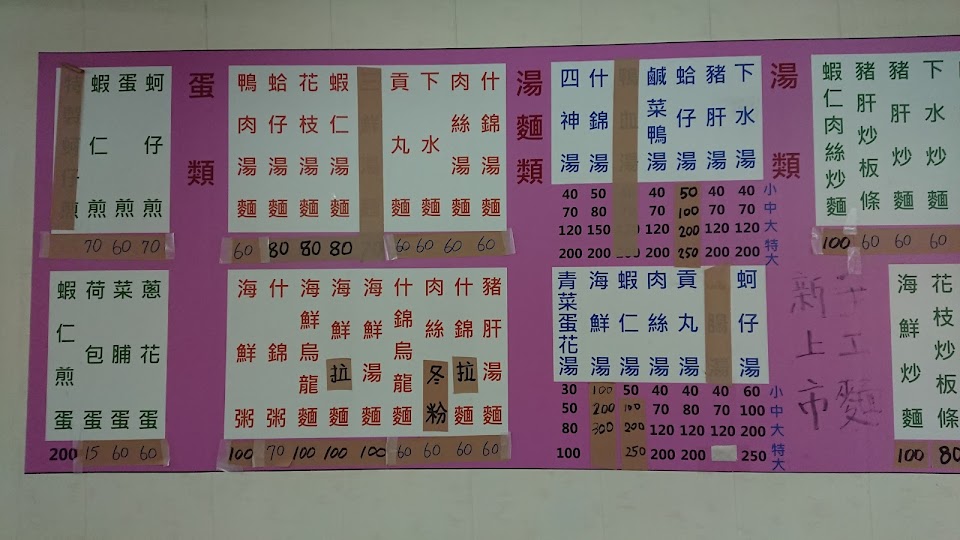 下水炒麵
豬肝炒麵
豬肝炒板條
蝦仁肉絲炒麵
100 60 60 60
花枝炒板條
海鮮炒麵
100 80
湯類
下水湯
豬肝湯
蛤仔湯
鹹菜鴨湯
什錦湯
四神湯
40 50 40 50 40 40 小
70 80 70 100 70 70 中
120 150 120 200 120 120 大
200 200 200 250 200 200 特大
新上市
工麵
蚵仔湯
貢丸湯
肉絲湯
蝦仁湯
海鮮湯
青菜蛋花湯
30 100 50 40 40 40 60 小
50 200 100 70 80 70 100 中
80 300 200 120 120 120 200 大
100 250 200 200 250 特大
湯麵類
什錦湯麵
肉絲湯麵
下水麵
貢丸麵
蝦仁湯麵
花枝湯麵
蛤仔湯麵
鴨肉湯麵
60 80 80 80 60 60 60 60
豬肝湯麵
什錦拉麵
肉絲冬粉
什錦烏龍麵
海鮮湯麵
海鮮拉麵
海鮮烏龍麵
什錦粥
海鮮粥
100 70 100 100 100 60 60 60 60
蛋類
蚵仔煎
蛋煎
蝦仁煎
70 60 70
蔥花蛋
菜脯蛋
荷包蛋
蝦仁煎蛋
200 15 60 60